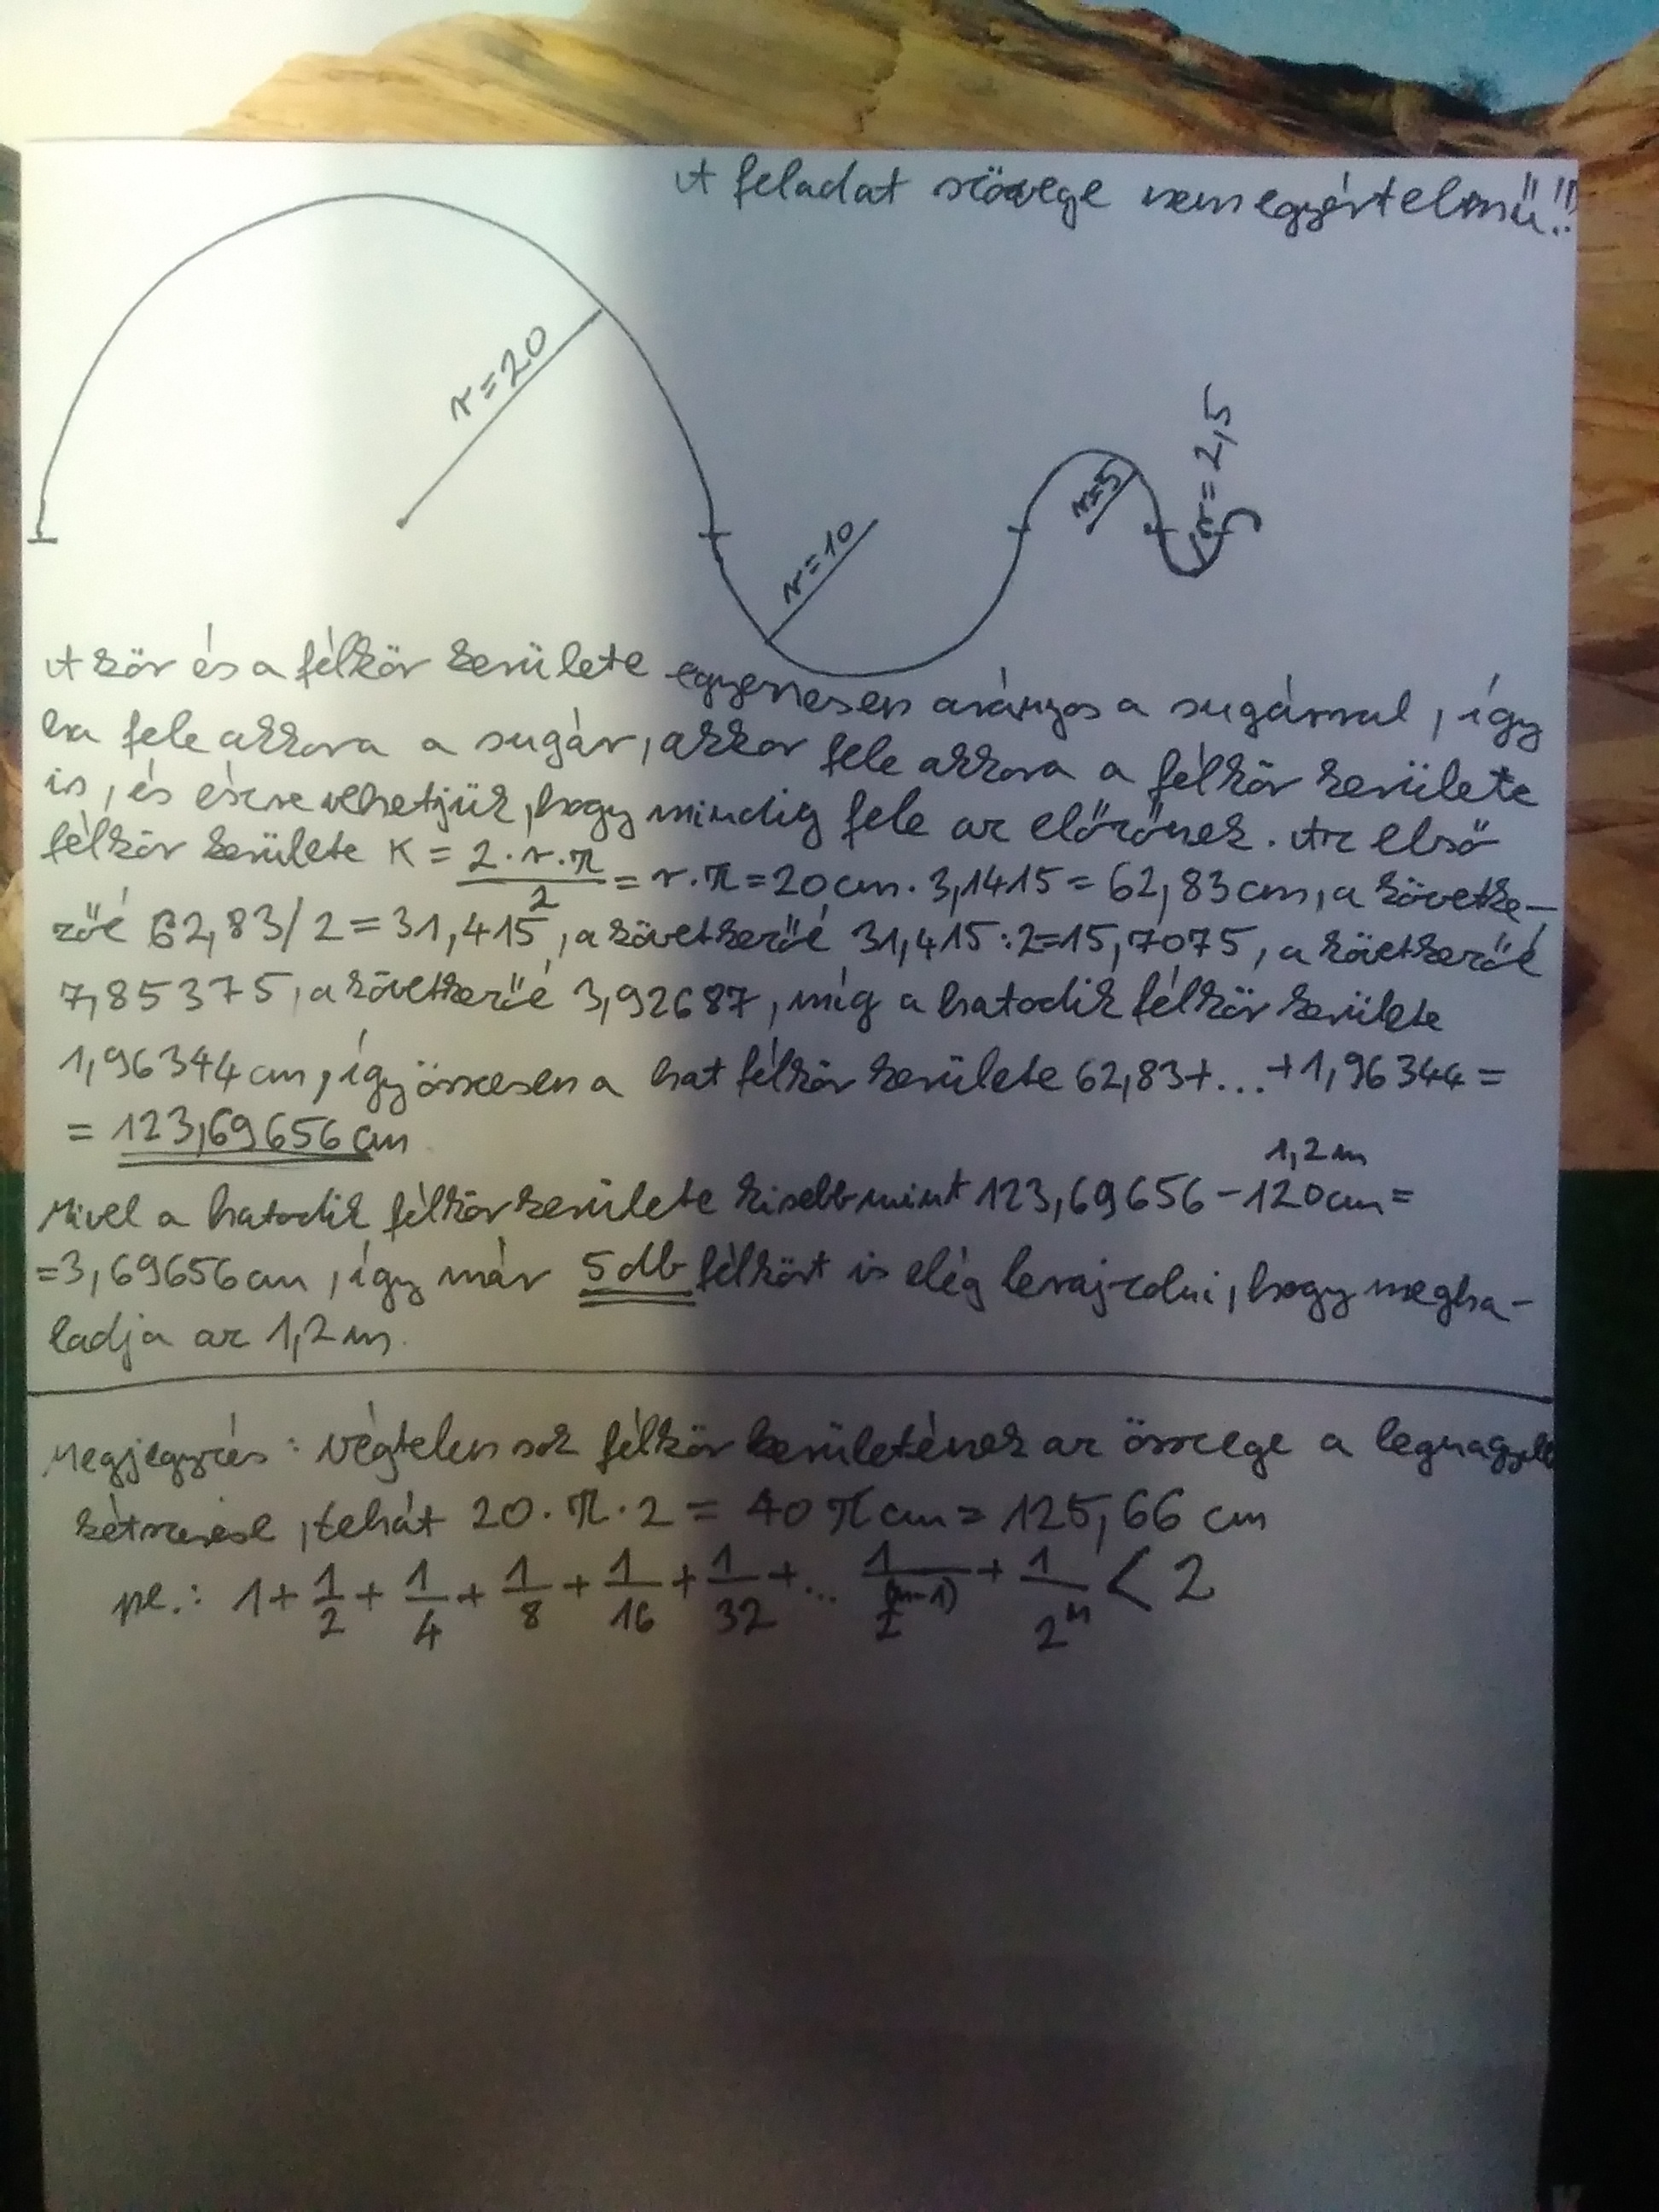 A feladat szövege nem egyértelmű!!
r=20
r=10
r=5
r=2,5
A kör és a félkör kerülete egyenesen arányos a sugárral, így
ha fele akkora a sugár, akkor fele akkora a félkör kerülete
is, és észrevehetjük, hogy mindig fele az előzőnek. Az első
félkör kerülete K = 2·r·π/2 = r·π = 20cm·3,1415 = 62,83cm, a követke-
zőé 62,83/2 = 31,415, a következőé 31,415:2=15,7075, a következőé
7,85375, a következőé 3,92687, míg a hatodik félkör kerülete
1,96344cm, így összesen a hat félkör kerülete 62,83+...+1,96344=
= 123,69656cm
1,2m
Mivel a hatodik félkör kerülete kisebb mint 123,69656-120cm=
=3,69656cm, így már 5db félkört is elég lerajzolni, hogy megha-
ladja az 1,2m.
Megjegyzés: Végtelen sok félkör kerületének az összege a legnagyobb
kétszerese, tehát 20·π·2 = 40πcm = 125,66 cm
pl.: 1+1/2+1/4+1/8+1/16+1/32+... 1/2^(n-1)+1/2^n < 2